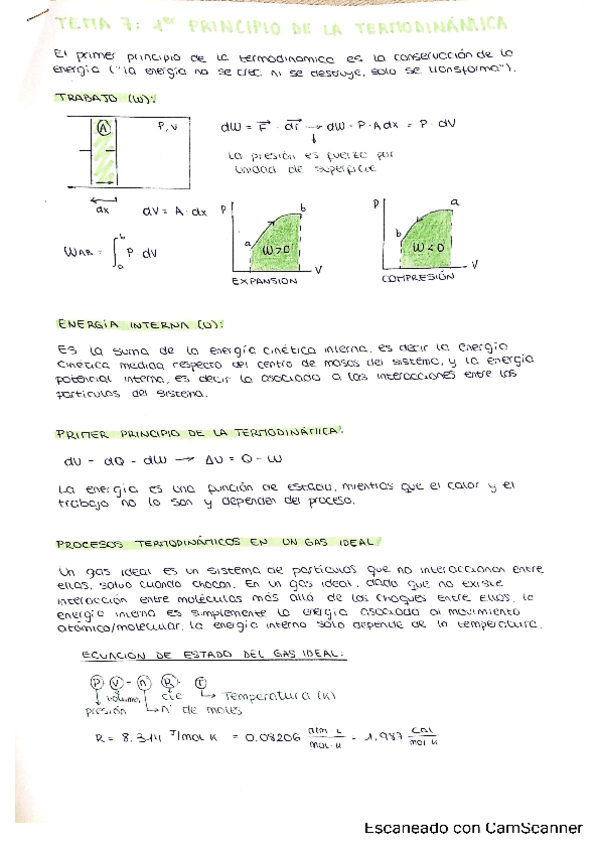 TEMA 7: 1er PRINCIPIO DE LA TERMODINÁMICA
El primer principio de la termodinamica es la conservación de la
energía ("la energía no se crea ni se destruye, solo se transforma").
TRABAJO (W):
A P, V
dW = F · dr → dW = P · A dx = P · dV
La presión es fuerza por
unidad de superficie
dx dV = A · dx
W_AB = ∫_a^b P · dV
P a b W>0 V
EXPANSION
P a b W<0 V
COMPRESIÓN
ENERGÍA INTERNA (U):
Es la suma de la energía cinética interna, es decir la energía
cinética medida respecto del centro de masas del sistema, y la energía
potencial interna, es decir la asociada a las interacciones entre las
partículas del sistema.
PRIMER PRINCIPIO DE LA TERMODINÁMICA:
dU = dQ - dW → ΔU = Q - W
La energía es una función de estado, mientras que el calor y el
trabajo no lo son y dependen del proceso.
PROCESOS TERMODINÁMICOS EN UN GAS IDEAL
Un gas ideal es un sistema de partículas que no interaccionan entre
ellas, salvo cuando chocan. En un gas ideal, dado que no existe
interacción entre moléculas más allá de los choques entre ellas, la
energía interna es simplemente la energía asociada al movimiento
atómico/molecular, la energía interna solo depende de la temperatura.
ECUACIÓN DE ESTADO DEL GAS IDEAL:
P · V = n · R · T
volumen cte → Temperatura (K)
presión → nº de moles
R = 8.314 J/mol K = 0.08206 atm L / mol · K = 1.987 cal / mol K
Escaneado con CamScanner